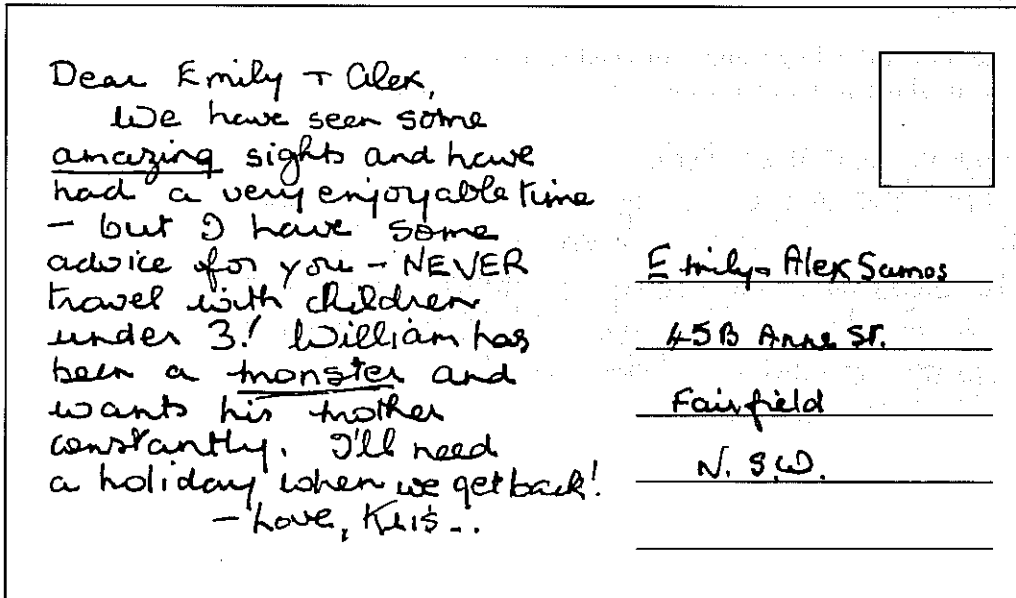 Dear Emily + Alex,
We have seen some
amazing sights and have
had a very enjoyable time
- but I have some
advice for you - NEVER
travel with children
under 3! William has
been a monster and
wants his mother
constantly. I'll need
a holiday when we get back!
- Love, Kris...
Emily + Alex Samos
45B Anne St.
Fairfield
N.S.W.